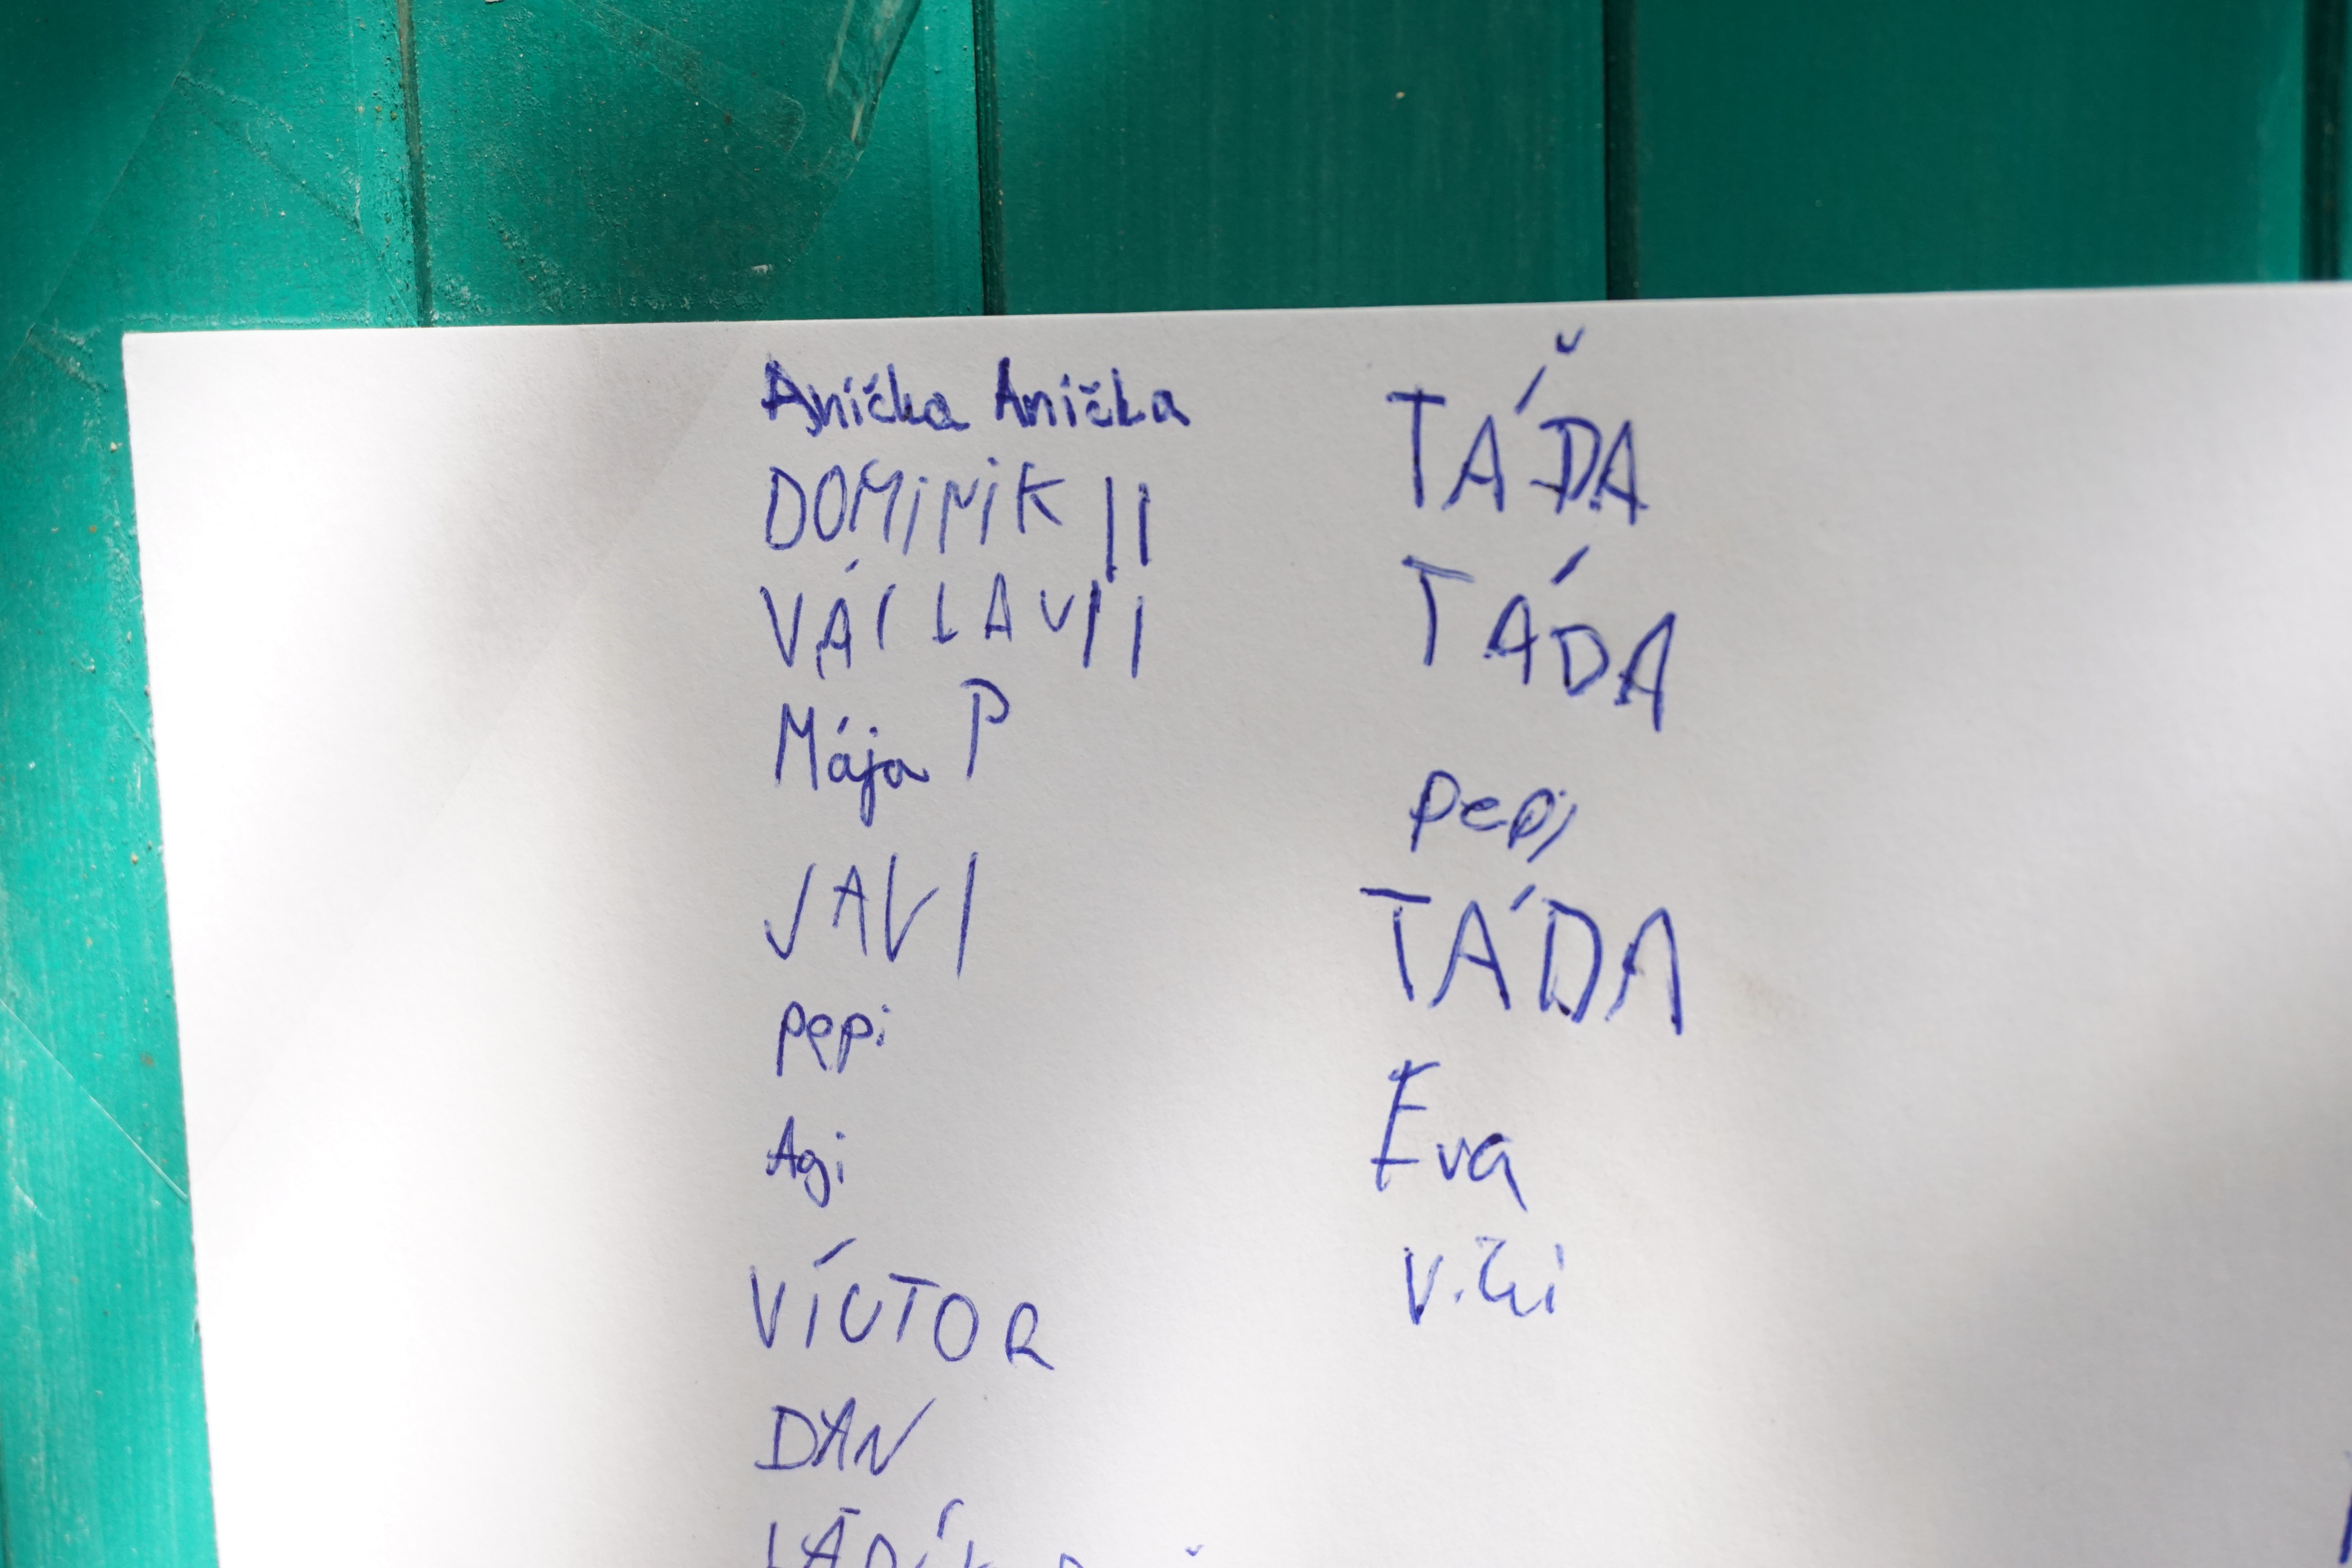 Anička Anička
DOMiNiK II
VÁCLAV II
Mája P
JAVI
pepi
Agi
VÍCTOR
DAN
TÁĎA
TÁDA
pepi
TÁDA
Eva